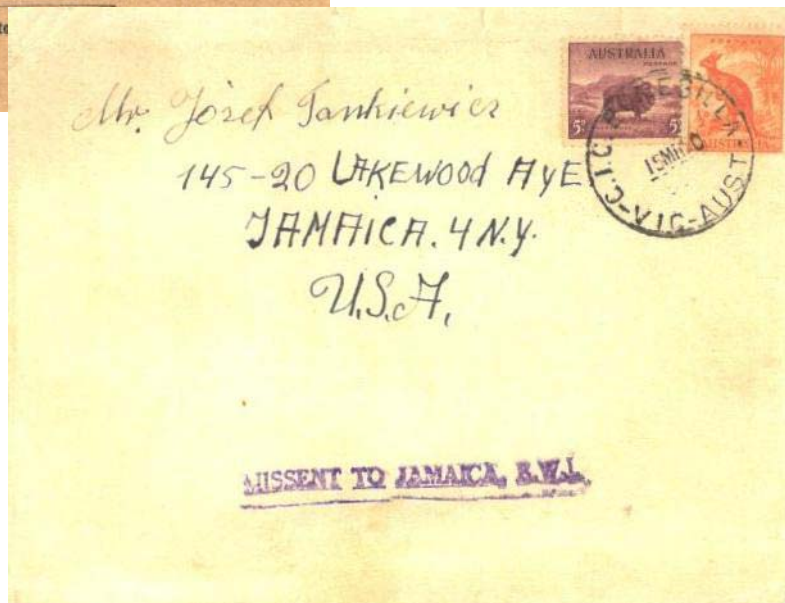 AUSTRALIA
POSTAGE
5D 5D
AUSTRALIA
C.I.C.
15MR 0
-VIC-AUST
Mr. Józef Jankiewicz
145-20 LAKEWOOD AVE.
JAMAICA. 4 N.Y.
U.S.A.
MISSENT TO JAMAICA, B.W.I.